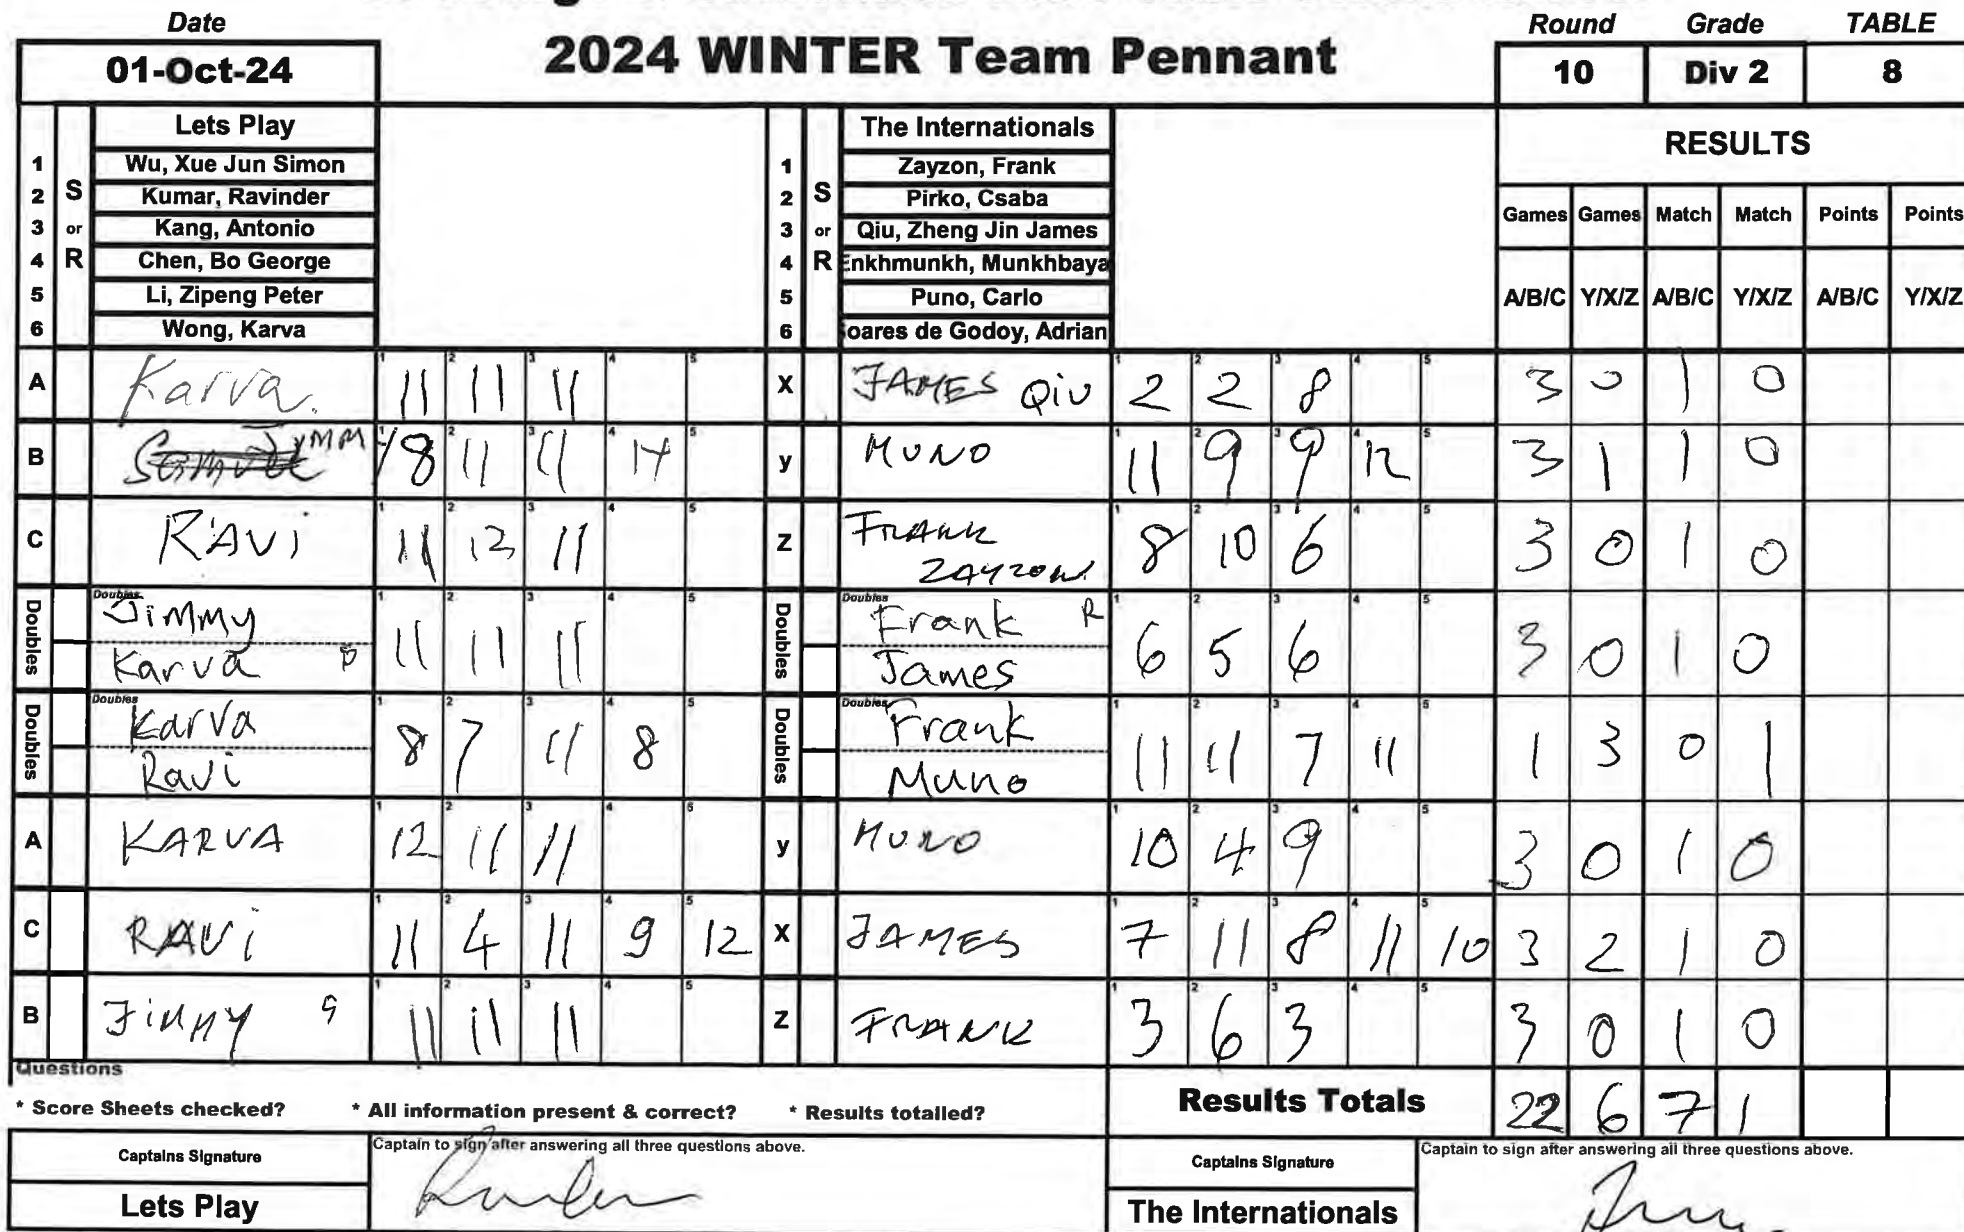 Date
01-Oct-24
2024 WINTER Team Pennant
Round Grade TABLE
10 Div 2 8
Lets Play
1 Wu, Xue Jun Simon
2 Kumar, Ravinder
3 Kang, Antonio
4 Chen, Bo George
5 Li, Zipeng Peter
6 Wong, Karva
S or R
The Internationals
1 Zayzon, Frank
2 Pirko, Csaba
3 Qiu, Zheng Jin James
4 Enkhmunkh, Munkhbaya
5 Puno, Carlo
6 oares de Godoy, Adrian
S or R
RESULTS
Games Games Match Match Points Points
A/B/C Y/X/Z A/B/C Y/X/Z A/B/C Y/X/Z
A Karva. 11 11 11 X JAMES QIU 2 2 8 3 0 1 0
B Jymmy 8 11 11 14 y MUNO 11 9 9 12 3 1 1 0
C RAVi 11 12 11 Z FRANK ZAYZON 8 10 6 3 0 1 0
Doubles Jimmy Karva 11 11 11 Doubles Frank R James 6 5 6 3 0 1 0
Doubles Karva Ravi 8 7 11 8 Doubles Frank Muno 11 11 7 11 1 3 0 1
A KARVA 12 11 11 y MUNO 10 4 9 3 0 1 0
C RAVi 11 4 11 9 12 X JAMES 7 11 8 11 10 3 2 1 0
B JiMMY 11 11 11 Z FRANK 3 6 3 3 0 1 0
Questions
* Score Sheets checked? * All information present & correct? * Results totalled?
Results Totals 22 6 7 1
Captains Signature
Captain to sign after answering all three questions above.
Lets Play
Captains Signature
Captain to sign after answering all three questions above.
The Internationals